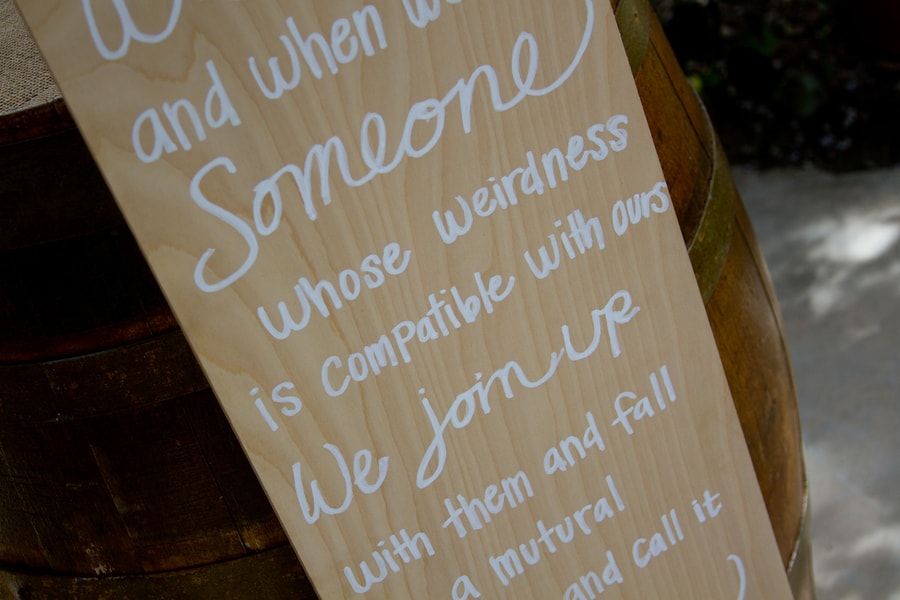 and when we
Someone
whose weirdness
is compatible with ours
We join up
with them and fall
a mutural
and call it